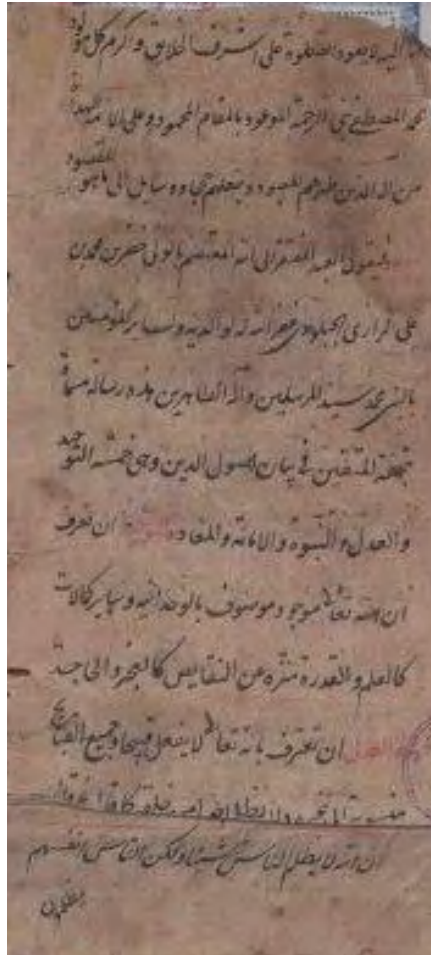 اليه لا يعود الصلوة على اشرف الخلايق واكرم كل مولود
محمد المصطفى نبي الرحمة الموعود بالمقام المحمود وعلى الائمة
من آله الذين للمعبود ووسايل الى ما هو المقصود
فيقول العبد المفتقر الى الله المعتصم بالولي خضر بن محمد بن
علي الرازي الحبلرودي غفر الله له ولوالديه ولساير المؤمنين
بالنبي محمد سيد المرسلين وآله الطاهرين هذه رسالة مسماة
بتحفة المتقين في بيان اصول الدين وهي خمسة التوحيد
والعدل والنبوة والامامة والمعاد ان تعرف
ان الله تعالى موجود موصوف بالوحدانية وساير كمالات
كالعلم والقدرة منزه عن النقايص كالعجز والحاجة
العدل ان تعترف بانه تعالى لا يفعل قبيحا وجميع القبايح
ان الله لا يظلم الناس شيئا ولكن الناس انفسهم
يظلمون